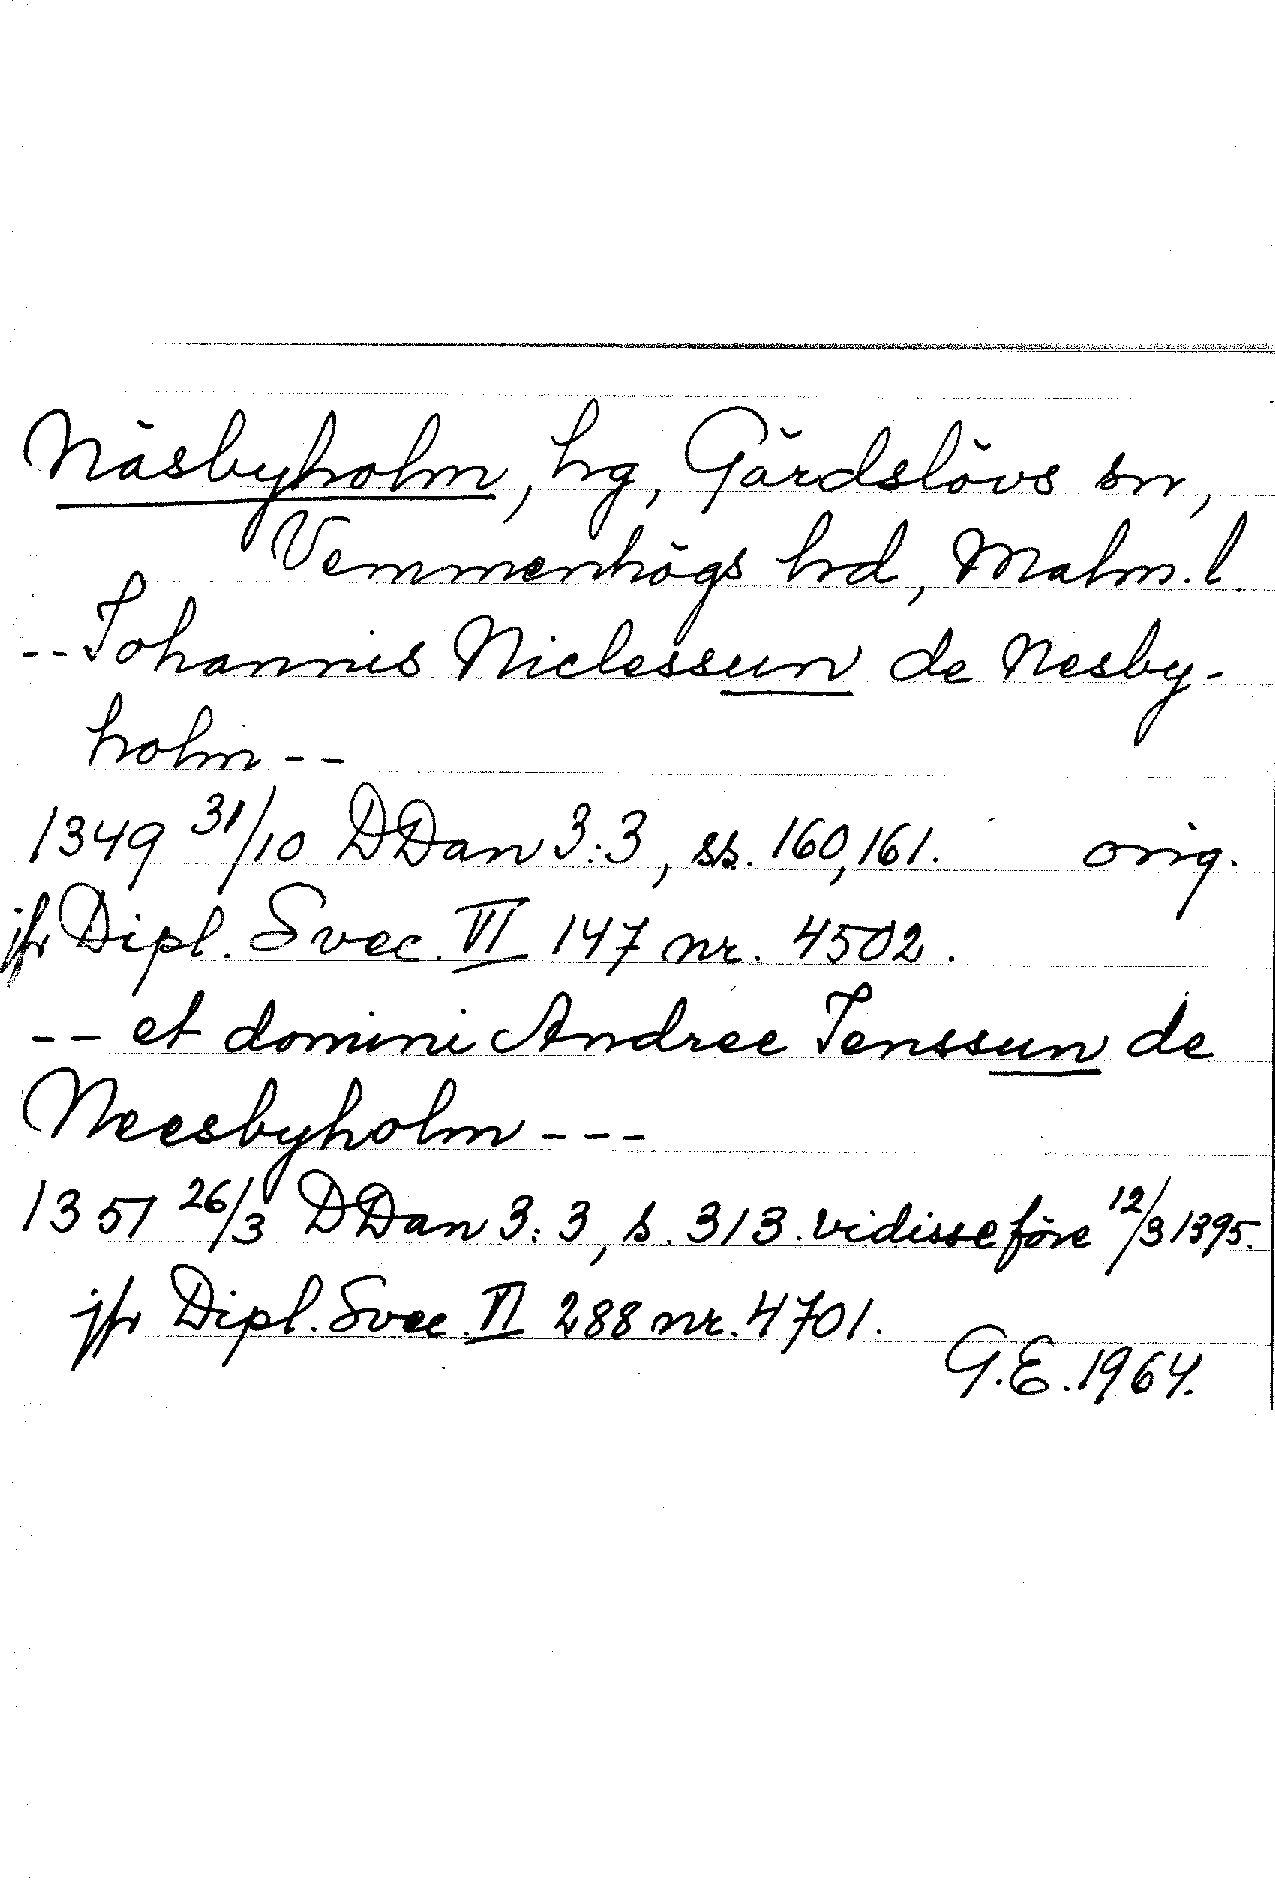 Näsbyholm, hg, Gärdslövs sn,
Vemmenhögs hd, Malm. l.
-- Johannis Niclessun de Nesby-
holm --
1349 31/10 DDan 3:3, ss. 160, 161. orig.
jfr Dipl. Svec. VI 147 nr. 4502.
-- et domini Andree Jenssun de
Neesbyholm ---
1351 26/3 DDan 3:3, s. 313. vidisse före 12/3 1395.
jfr Dipl. Svec. VI 288 nr. 4701.
G.E. 1964.